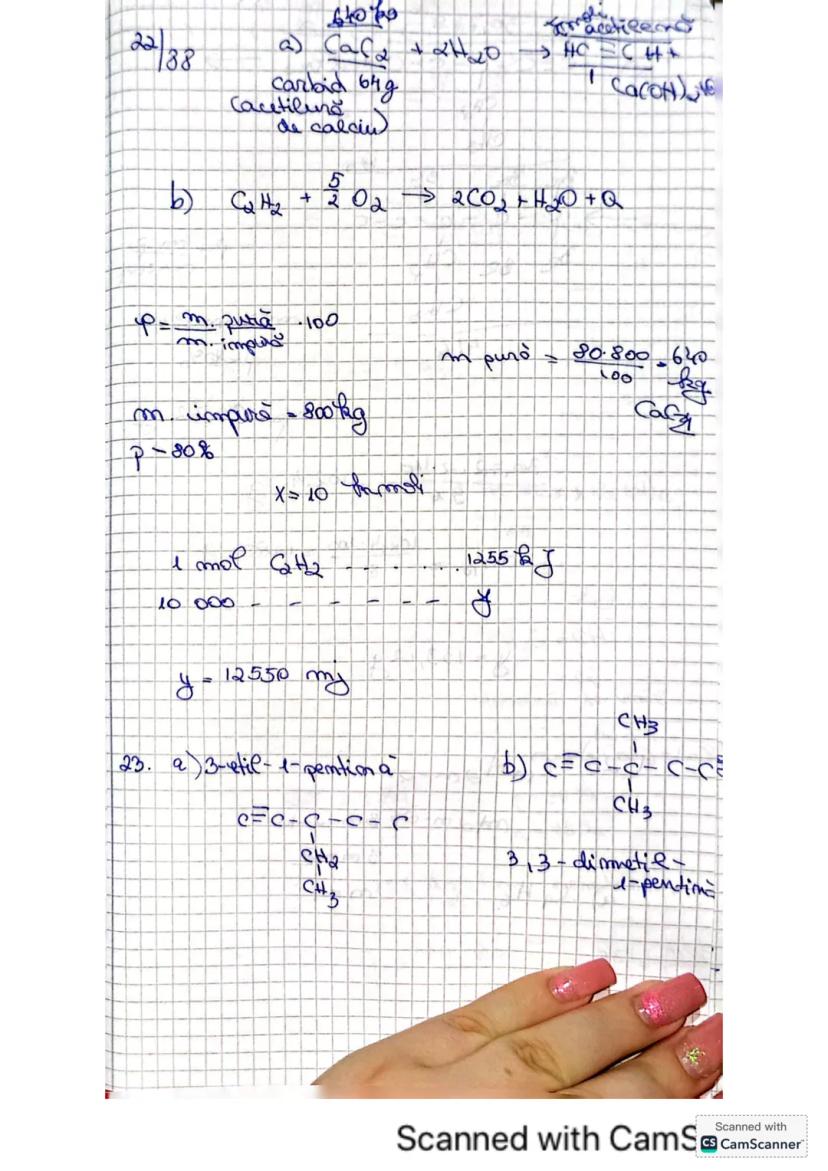 640 kg
xmoli
acetilenă
22/38 a) CaC2 + 2H2O → HC ≡ CH +
carbid 64g 1 Ca(OH)2
(acetilură
de calciu)
b) C2H2 + 5/2 O2 → 2CO2 + H2O + Q
p = m. pură / m. impură · 100
m pură = 80·800 / 100 = 640
kg
CaC2
m. impură = 800 kg
p = 80%
x = 10 kmoli
1 mol C2H2 ....... 1255 kJ
10 000 - - - - - - y
y = 12550 mj
23. a) 3-etil-1-pentină
C≡C-C-C-C
CH2
CH3
b) CH3
C≡C-C-C-C
CH3
3,3-dimetil-
1-pentină
Scanned with CamS
Scanned with
CS CamScanner